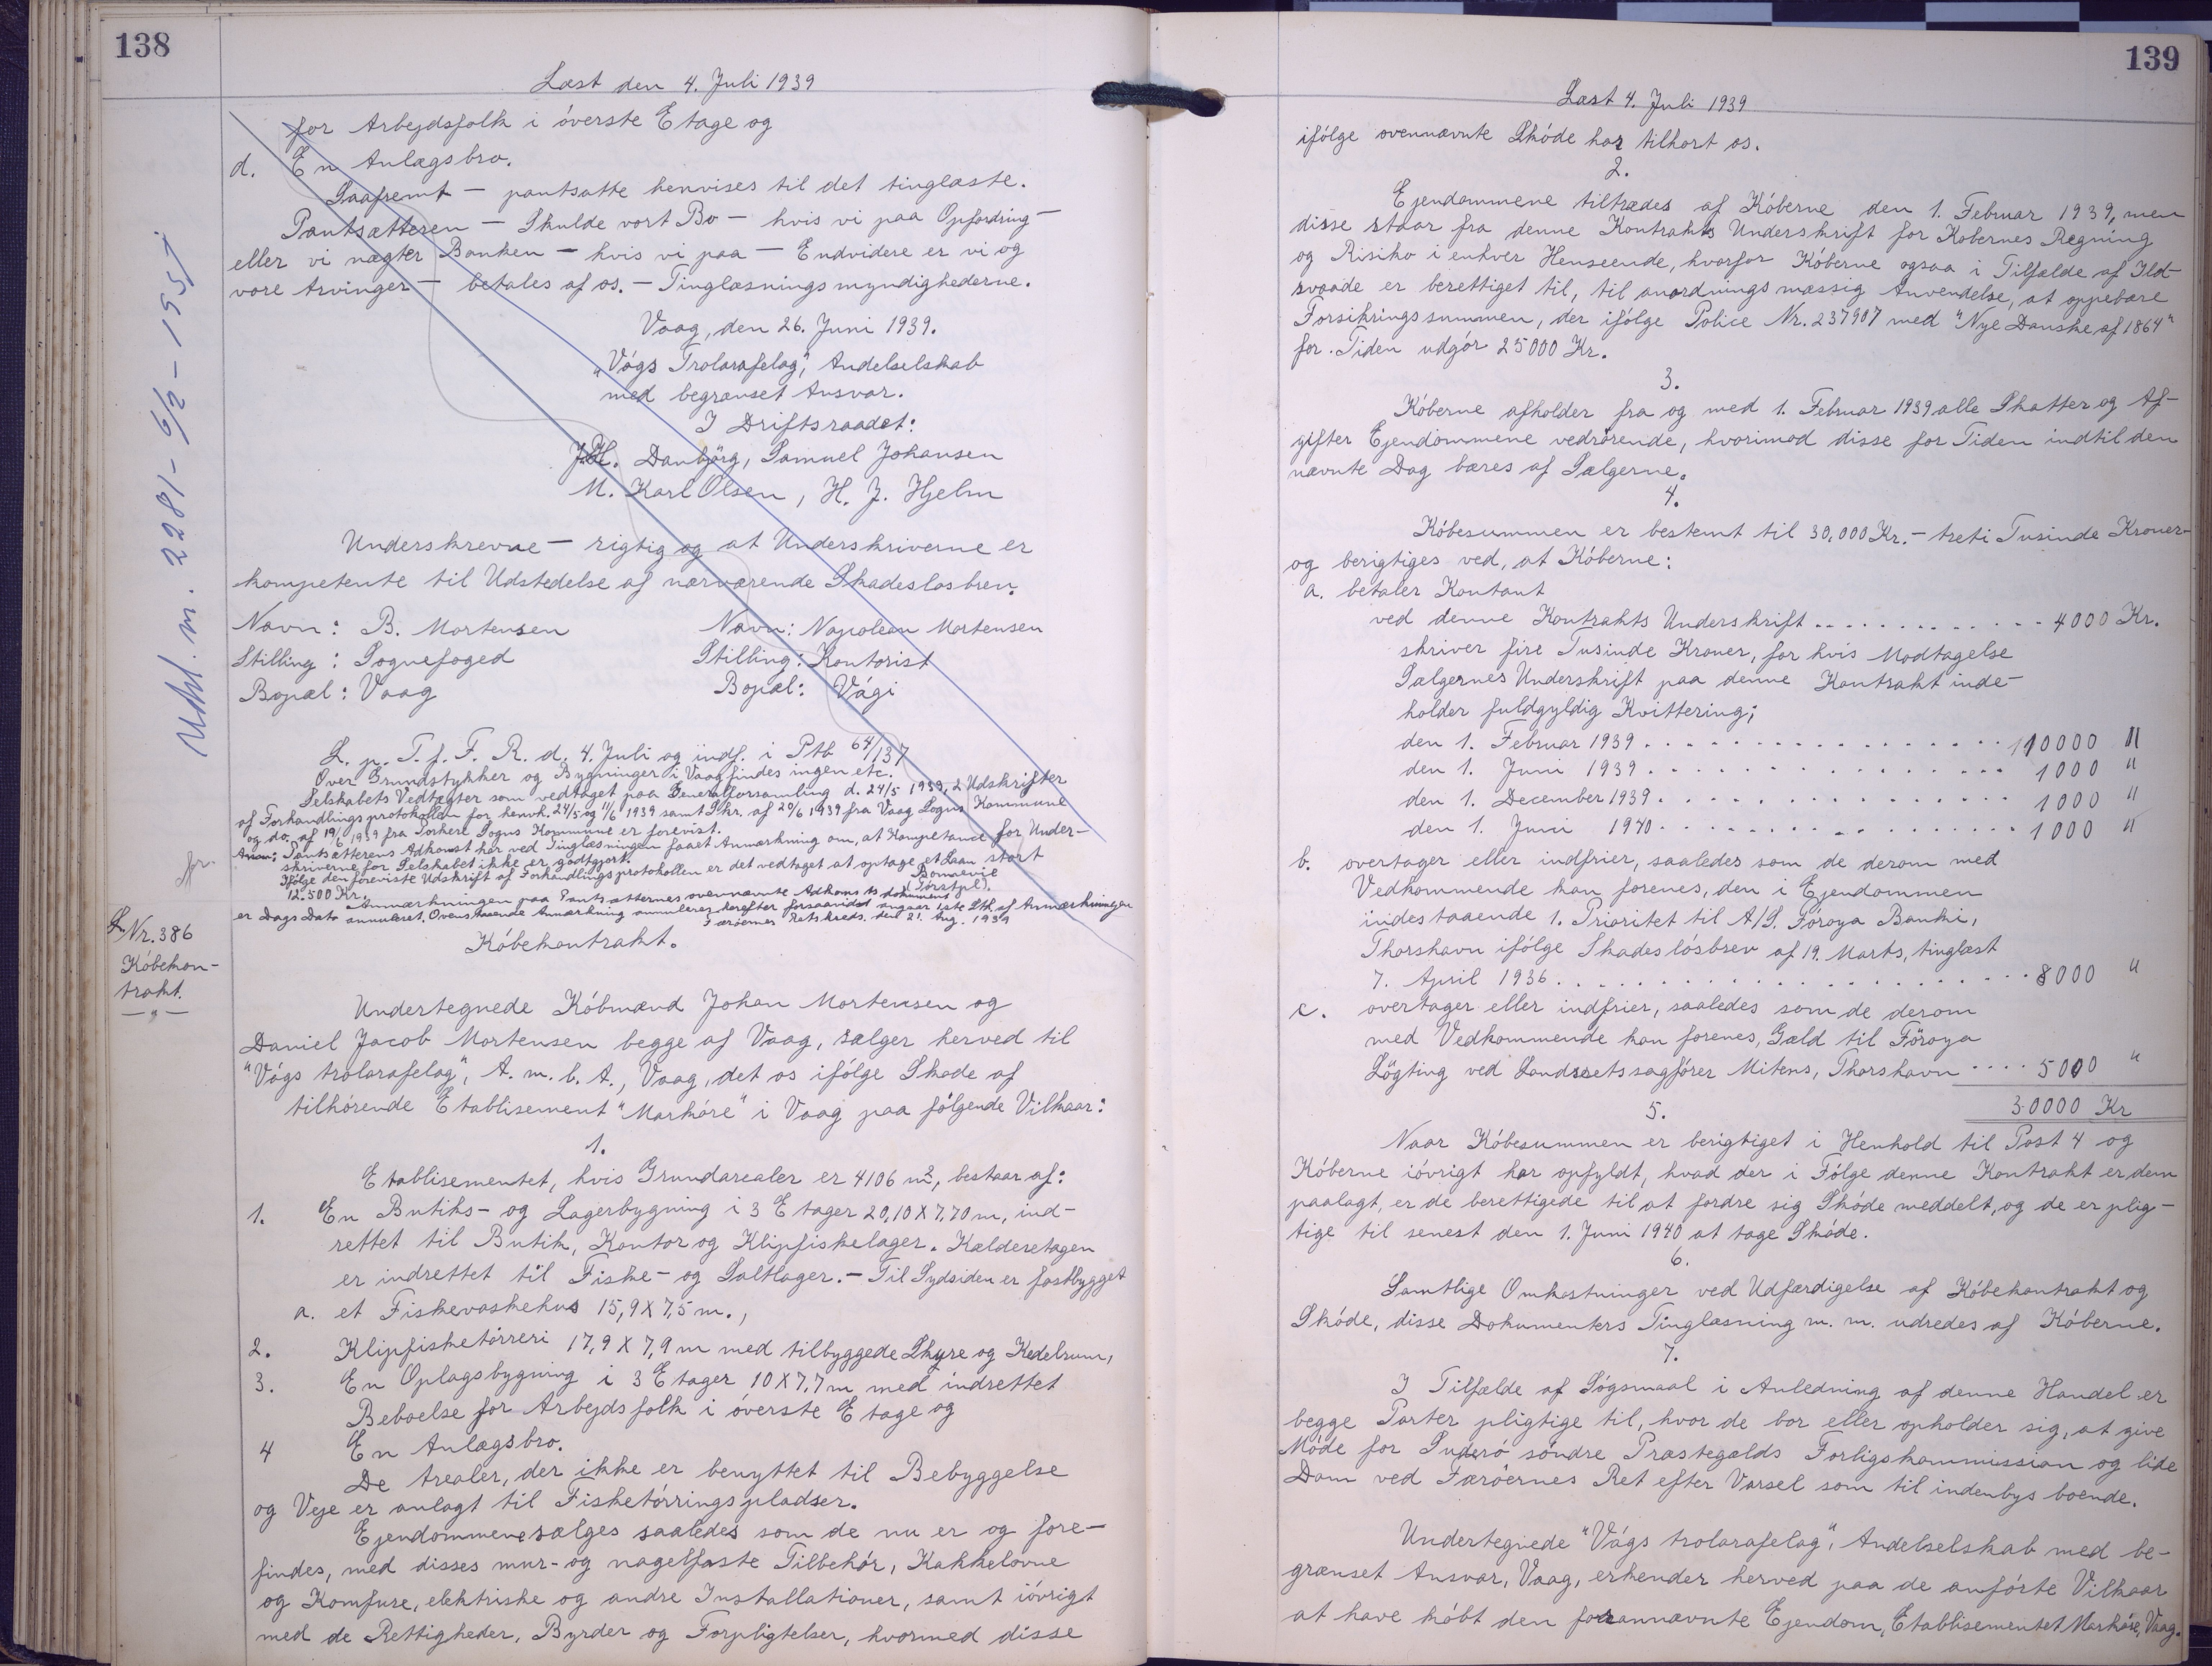 138
Læst den 4. Juli 1939
for Arbejdsfolk i óverste Etage og
d. En Anlægsbro.
Saafremt — pantsatte henvises til det tinglæste.
Pantsætteren — Skulde vort Bo — hvis vi paa Opfordring —
eller vi nægter Banken — hvis vi paa — Endvidere er vi og
vore Arvinger — betales af os. — Tinglæsningsmyndighederne.
Vaag, den 26. Juni 1939.
"Vágs Trolarafelag", Andelselskab
med begrænset Ansvar.
I Driftsraadet:
J.H. Danbjörg, Samuel Johansen
M. Karl Olsen, H. J. Hjelm
Underskrevne — rigtig og at Underskriverne er
kompetente til Udstedelse af nærværende Skadeslosbrev.
Navn: B. Mortensen Navn: Napolean Mortensen
Stilling: Sognefoged Stilling: Kontorist
Bopæl: Vaag Bopæl: Vági
L. p. T. f. F. R. d. 4. Juli og indf. i Ptb 64/137
Over Grundstykker og Bygninger i Vaag findes ingen etc.
Selskabets Vedtægter som vedtaget paa Generalforsamling d. 24/5 1939, 2 Udskrifter
af Forhandlingsprotokollen for henvh. 24/5 og 11/6 1939 samt Skr. af 20/6 1939 fra Vaag Sogns Kommune
og do. af 19/6 1939 fra Porkere Sogns Kommune er forevist.
Anm: Pantsætterens Adkomst har ved Tinglæsningen faaet Anmærkning om, at Kompetance for Under-
skriverne for Selskabet ikke er godtgjort.
Ifólge den foreviste Udskrift af Forhandlingsprotokollen er det vedtaget at optage et Laan stort
12.500 Kr. Bonnevie
(Forstpl).
Anmærkningen paa Pantsætternes ovennævnte Adkomstsdokument
er Dags Dato annuleret. Ovenstaaende Anmærkning annuleres herefter forsaavidt angaar 1ste Pkt. af Anmærkningen
Færóernes Retskreds, den 21. Aug. 1939
Utsl. nr. 2281 - 6/2 - 1951
L. Nr. 386
Kóbekon-
trakt.
— " —
Kóbekontrakt.
Undertegnede Kóbmænd Johan Mortensen og
Daniel Jacob Mortensen begge af Vaag, sælger herved til
"Vógs trolarafelag", A. m. b. A., Vaag, det os ifólge Skøde af
tilhórende Etablisement "Markóre" i Vaag paa fólgende Vilkaar:
1.
Etablisementet, hvis Grundarealer er 4106 m², bestaar af:
1. En Butiks- og Lagerbygning i 3 Etager 20,10 X 7,70 m, ind-
rettet til Butik, Kontor og Klipfiskelager. Kælderetagen
er indrettet til Fiske- og Saltlager. — Til Sydsiden er fastbygget
a. et Fiskevaskehus 15,9 X 7,5 m.,
2. Klipfisketórreri 17,9 X 7,9 m med tilbyggede Skure og Kedelrum,
3. En Oplagsbygning i 3 Etager 10 X 7,7 m med indrettet
Beboelse for Arbejdsfolk i óverste Etage og
4 En Anlægsbro.
De Arealer, der ikke er benyttet til Bebyggelse
og Veje er anlagt til Fisketórringspladser.
Ejendommene sælges saaledes som de nu er og fore-
findes, med disses mur- og nagelfaste Tilbehór, Kakkelovne
og Komfure, elektriske og andre Installationer, samt ióvrigt
med de Rettigheder, Byrder og Forpligtelser, hvormed disse
139
Læst 4. Juli 1939
ifólge ovennævnte Skóde har tilhørt os.
2.
Ejendommene tiltrædes af Kóberne den 1. Februar 1939, men
disse staar fra denne Kontrakts Underskrift for Købernes Regning
og Risiko i enhver Henseende, hvorfor Kóberne ogsaa i Tilfælde af Ild-
svaade er berettiget til, til anordningsmæssig Anvendelse, at oppebære
Forsikringssummen, der ifólge Police Nr. 237907 med "Nye Danske af 1864"
for Tiden udgór 25000 Kr.
3.
Kóberne afholder fra og med 1. Februar 1939 alle Skatter og Af-
gifter Ejendommene vedrórende, hvorimod disse for Tiden indtil den
nævnte Dag bæres af Sælgerne.
4.
Kóbesummen er bestemt til 30,000 Kr. — treti Tusinde Kroner —
og berigtiges ved, at Kóberne:
a. betaler Kontant
ved denne Kontrakts Underskrift . . . . . . . . . . . . 4000 Kr.
skriver fire Tusinde Kroner, for hvis Modtagelse
Sælgernes Underskrift paa denne Kontrakt inde-
holder fuldgyldig Kvittering;
den 1. Februar 1939 . . . . . . . . . . . . . . . 10000 "
den 1. Juni 1939 . . . . . . . . . . . . . . . 1000 "
den 1. December 1939 . . . . . . . . . . . . . . . 1000 "
den 1. Juni 1940 . . . . . . . . . . . . . . . 1000 "
b. overtager eller indfrier, saaledes som de derom med
Vedkommende kan forenes, den i Ejendommen
indestaaende 1. Prioritet til A/S. Fóroya Banki,
Thorshavn ifólge Skadeslósbrev af 19. Marts, tinglæst
7. April 1936 . . . . . . . . . . . . . . . . . . 8000 "
c. overtager eller indfrier, saaledes som de derom
med Vedkommende kan forenes, Gæld til Föroya
Lögting ved Landsretssagfórer Mitens, Thorshavn . . . . 5000 "
30000 Kr
5.
Naar Kóbesummen er berigtiget i Henhold til Post 4 og
Kóberne ióvrigt har opfyldt, hvad der i Fólge denne Kontrakt er dem
paalagt, er de berettigede til at fordre sig Skóde meddelt, og de er plig-
tige til senest den 1. Juni 1940 at tage Skóde.
6.
Samtlige Omkostninger ved Udfærdigelse af Kóbekontrakt og
Skóde, disse Dokumenters Tinglæsning m. m. udredes af Kóberne.
7.
I Tilfælde af Sógsmaal i Anledning af denne Handel er
begge Parter pligtige til, hvor de bor eller opholder sig, at give
Móde for Suderó sóndre Præstegælds Forligskommission og lide
Dom ved Færóernes Ret efter Varsel som til indenbys boende.
Undertegnede "Vágs trolarafelag", Andelselskab med be-
grænset Ansvar, Vaag, erkender herved paa de anfórte Vilkaar
at have kóbt den forannævnte Ejendom, Etablisementet Markóre, Vaag.